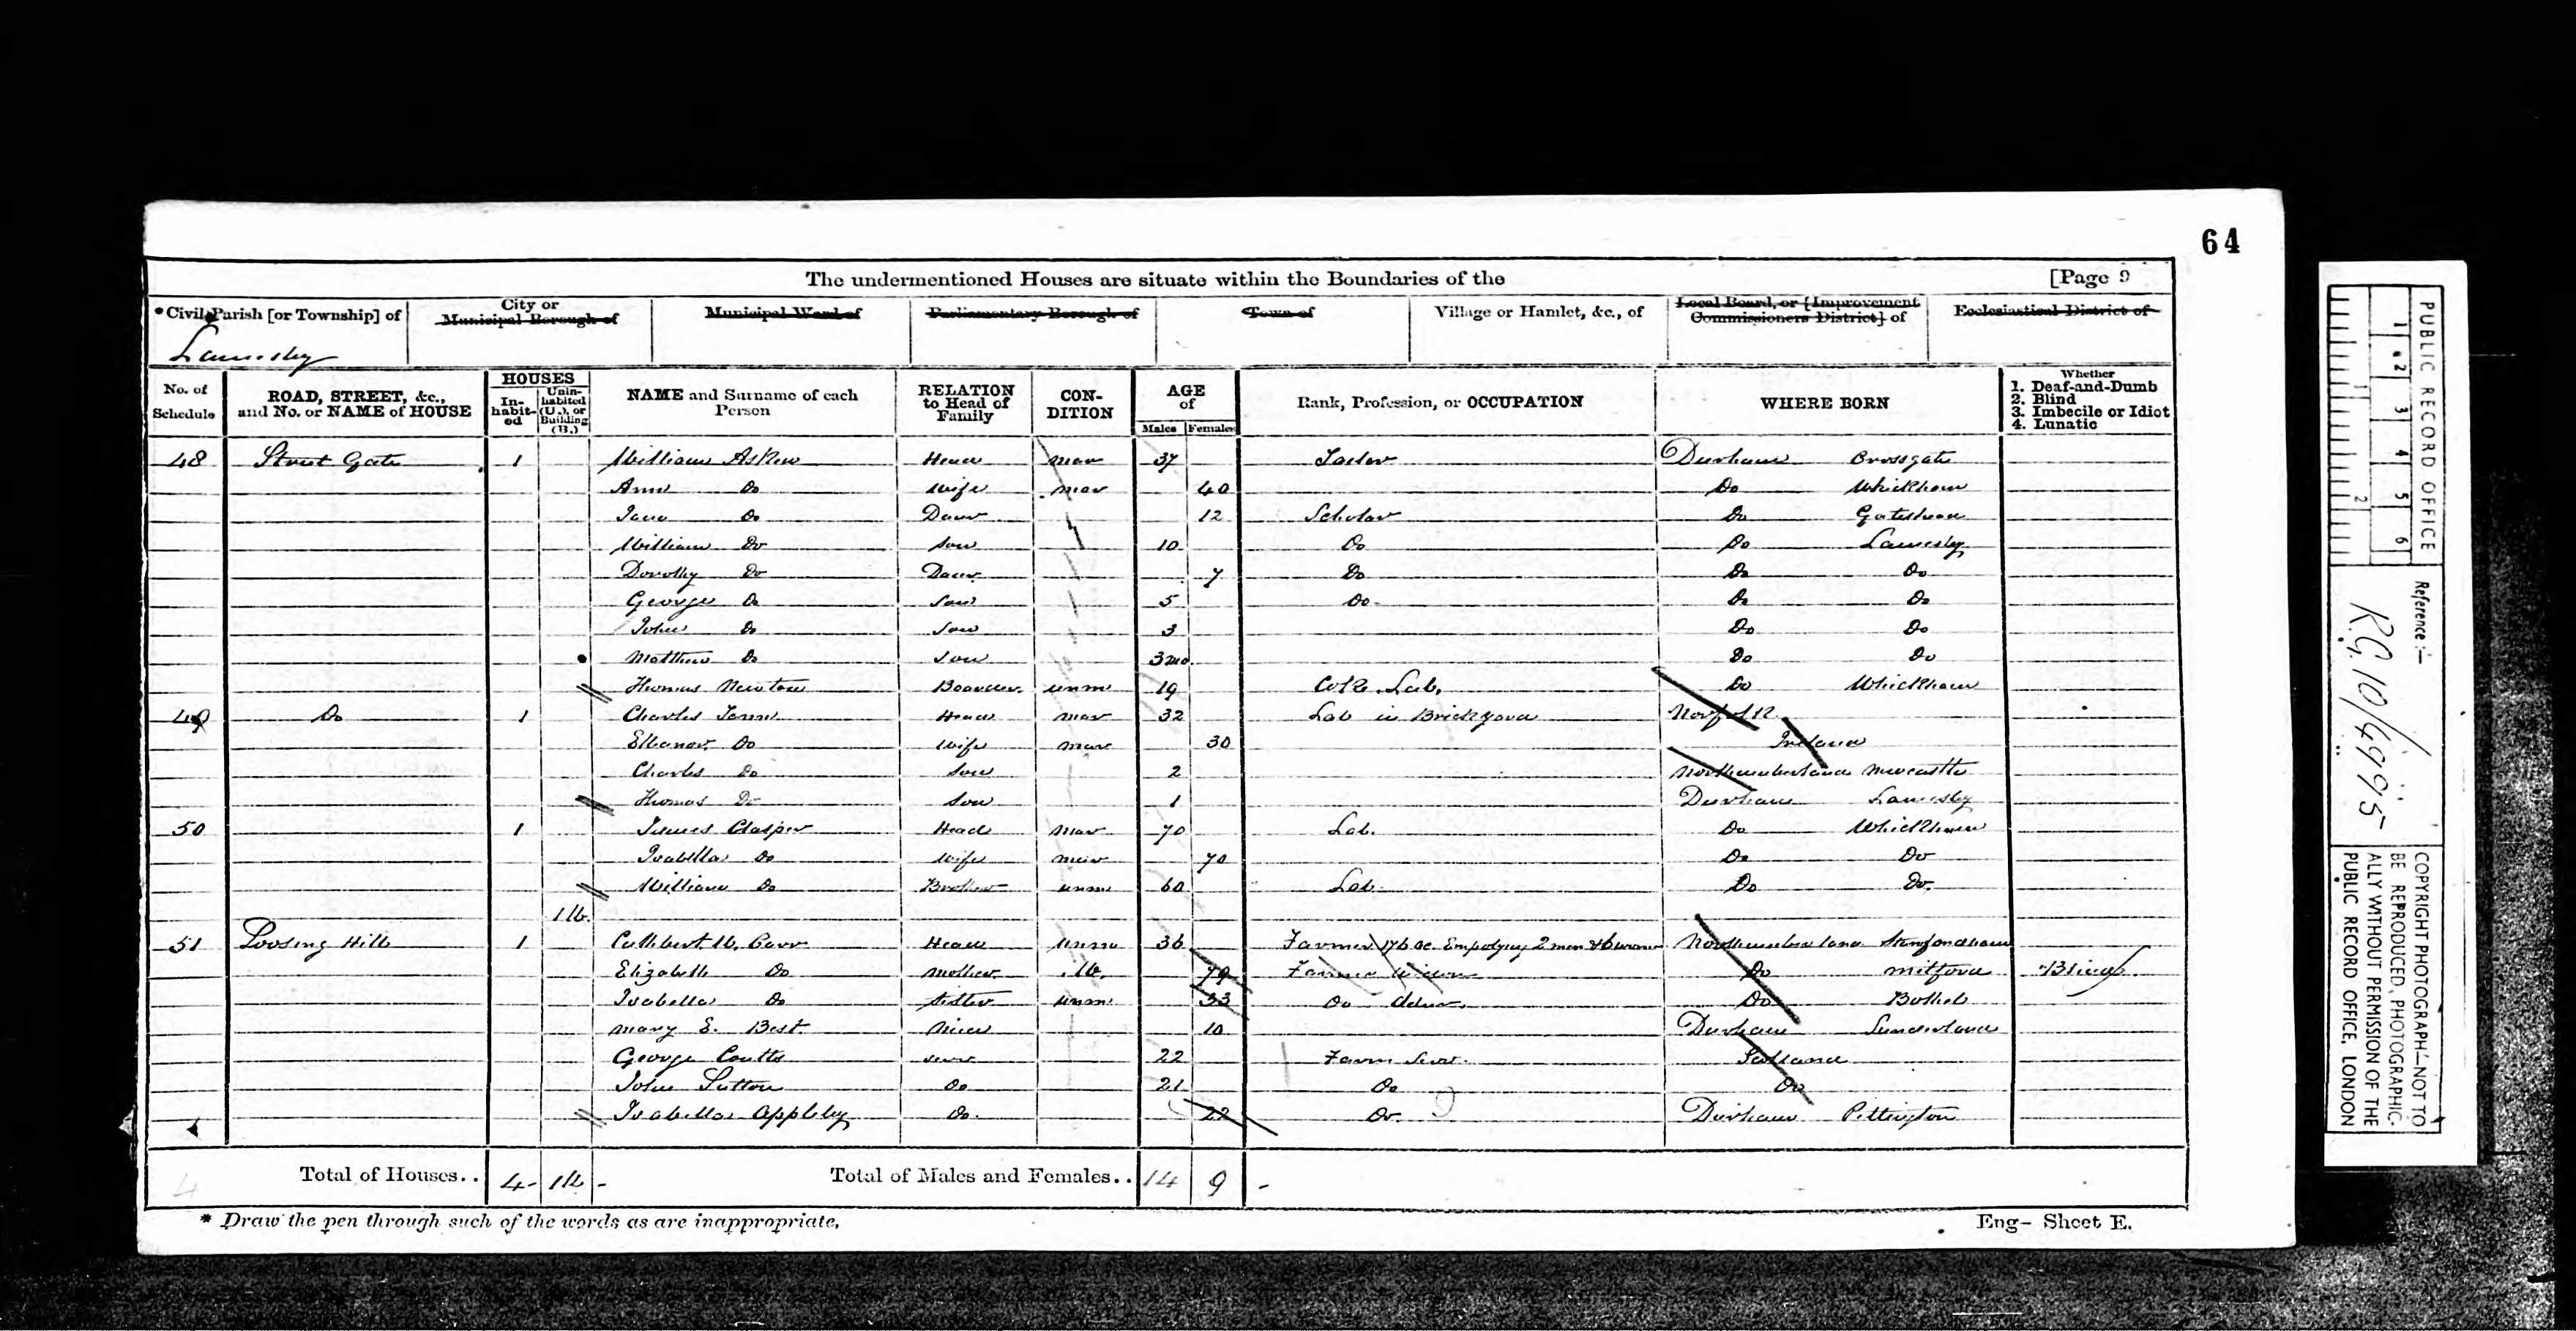 64
The undermentioned Houses are situate within the Boundaries of the [Page 9
*Civil Parish [or Township] of City or Municipal Borough of Municipal Ward of Parliamentary Borough of Town of Village or Hamlet, &c., of Local Board, or [Improvement Commissioners District] of Ecclesiastical District of
Lamesley
No. of Schedule ROAD, STREET, &c., and No. or NAME of HOUSE HOUSES In-habit-ed Unin-habited (U.), or Building (B.) NAME and Surname of each Person RELATION to Head of Family CON-DITION AGE of Males Females Rank, Profession, or OCCUPATION WHERE BORN Whether 1. Deaf-and-Dumb 2. Blind 3. Imbecile or Idiot 4. Lunatic
48 Street Gate 1 William Askew Head mar 37 Tailor Durham Crossgate
Ann Do Wife mar 40 Do Whickham
Jane Do Daur 12 Scholar Do Gateshead
William Do Son 10 Do Do Lamesley
Dorothy Do Daur 7 Do Do Do
George Do Son 5 Do Do Do
John Do Son 3 Do Do
Matthew Do Son 3mo Do Do
Thomas Newton Boarder unm 19 Coke Lab. Do Whickham
49 Do 1 Charles Head mar 32 Lab in Brickyard Norfolk
Elleanor Do Wife mar 30 Ireland
Charles Do Son 2 Northumberland Newcastle
Thomas Do Son 1 Durham Lamesley
50 1 James Clasper Head mar 70 Lab. Do Whickham
Isabella Do Wife mar 70 Do Do
William Do Brother unm 60 Lab. Do Do
1 U.
51 Loosing Hill 1 Cuthbert W. Carr Head unm 36 Farmer 176 ac. Employing 2 men & 6 women Northumberland Stamfordham
Elizabeth Do Mother W. 79 Farmer Widow Do Mitford Blind
Isabella Do Sister unm 33 Do Do Bothel
Mary E. Best Niece 10 Durham Sunderland
George Coutts Serv 22 Farm Serv. Scotland
John Sutton Do 21 Do Do
Isabella Appleby Do 22 Do Durham Pittington
4 Total of Houses.. 4 1U Total of Males and Females.. 14 9
* Draw the pen through such of the words as are inappropriate.
Eng- Sheet E.
PUBLIC RECORD OFFICE
1 2 3 4 5 6
1 2
Reference:-
R.G. 10/4995
COPYRIGHT PHOTOGRAPH—NOT TO BE REPRODUCED PHOTOGRAPHIC-ALLY WITHOUT PERMISSION OF THE PUBLIC RECORD OFFICE, LONDON